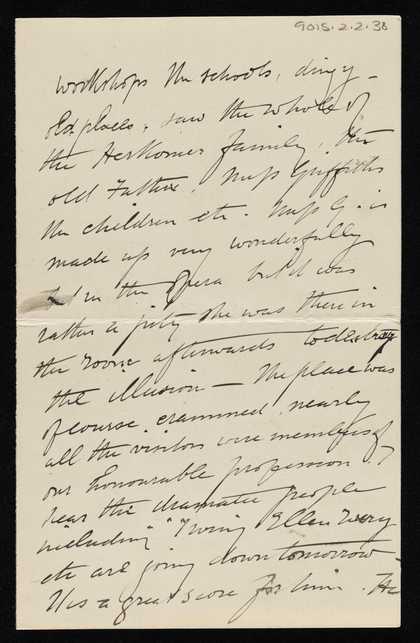 9015.2.2.38
workshops the schools, dingy
old places, saw the whole of
the Herkomer family, the
old Father, Miss Griffiths
the children etc. Miss G. is
made up very wonderfully
in the Opera but it was
rather a pity she was there in
the room afterwards to destroy
the illusion — The place was
of course crammed, nearly
all the visitors were members of
our honourable profession I
hear the dramatic people
including Irving Ellen Terry
etc are going down tomorrow —
It is a great score for him. He